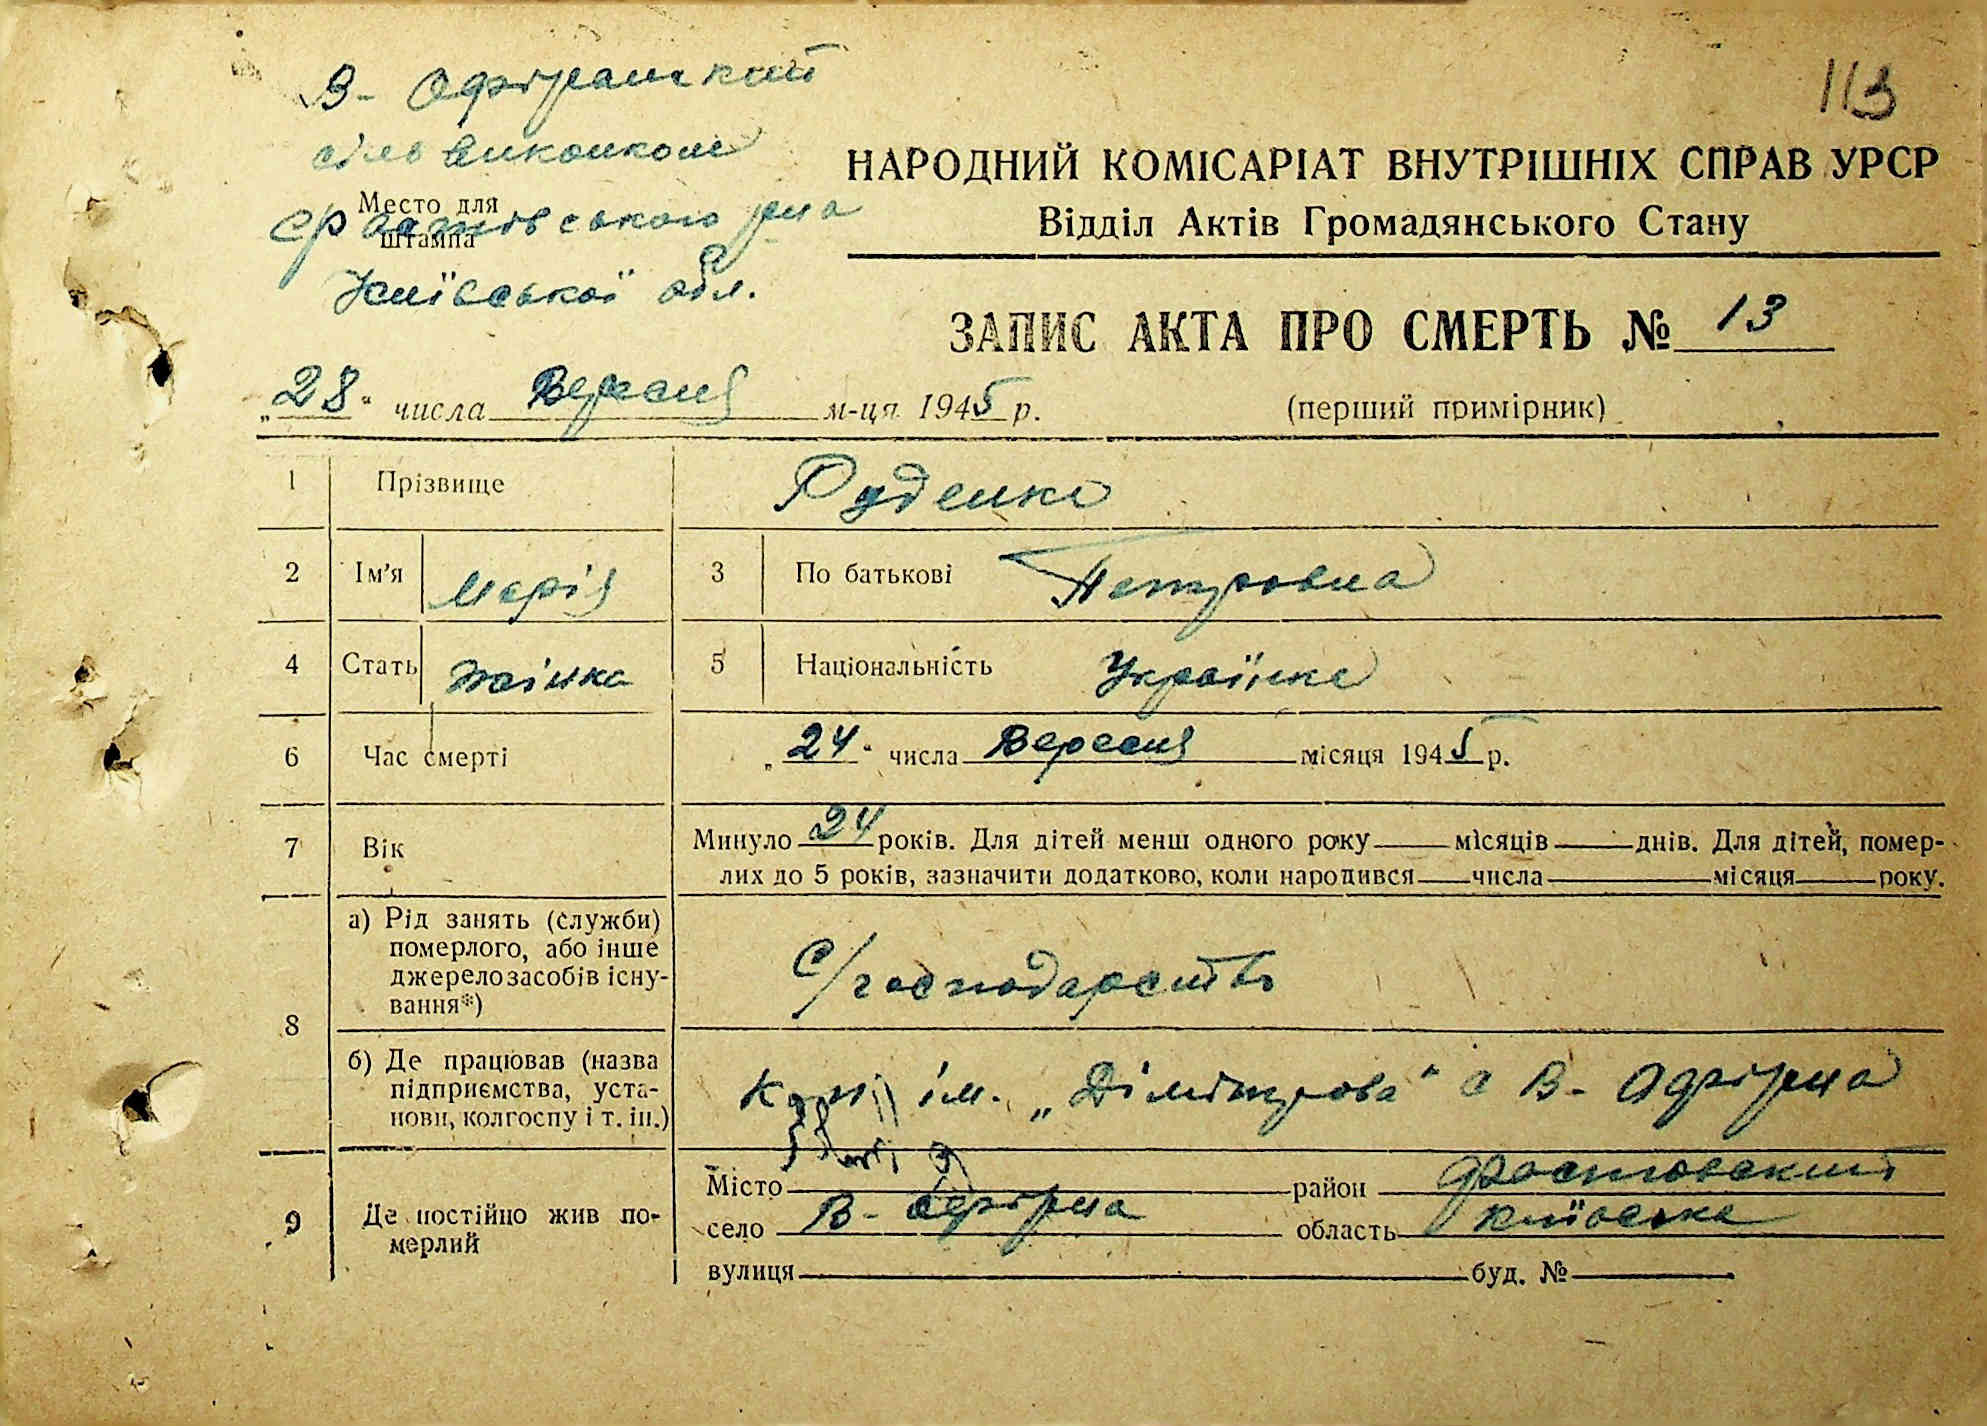 113
В- Офірнський
сільвиконком
Место для
штампа
Фастівського р-на
Київської обл.
НАРОДНИЙ КОМІСАРІАТ ВНУТРІШНІХ СПРАВ УРСР
Відділ Актів Громадянського Стану
ЗАПИС АКТА ПРО СМЕРТЬ № 13
„28“ числа Вересня м-ця 1945 р.
(перший примірник)
1 Прізвище Руденко
2 Ім'я Марія 3 По батькові Петровна
4 Стать жінка 5 Національність Українка
6 Час смерті „24“ числа Вересня місяця 1945 р.
7 Вік Минуло 24 років. Для дітей менш одного року місяців днів. Для дітей, помер-
лих до 5 років, зазначити додатково, коли народився числа місяця року.
8 а) Рід занять (служби)
померлого, або інше
джерело засобів існу-
вання*)
С/господарство
б) Де працював (назва
підприємства, уста-
нови, колгоспу і т. ін.)
ім. „Дімітрова“ с В- Офірна
9 Де постійно жив по-
мерлий
Місто район Фастовский
село В- Офірна область Київська
вулиця буд. №